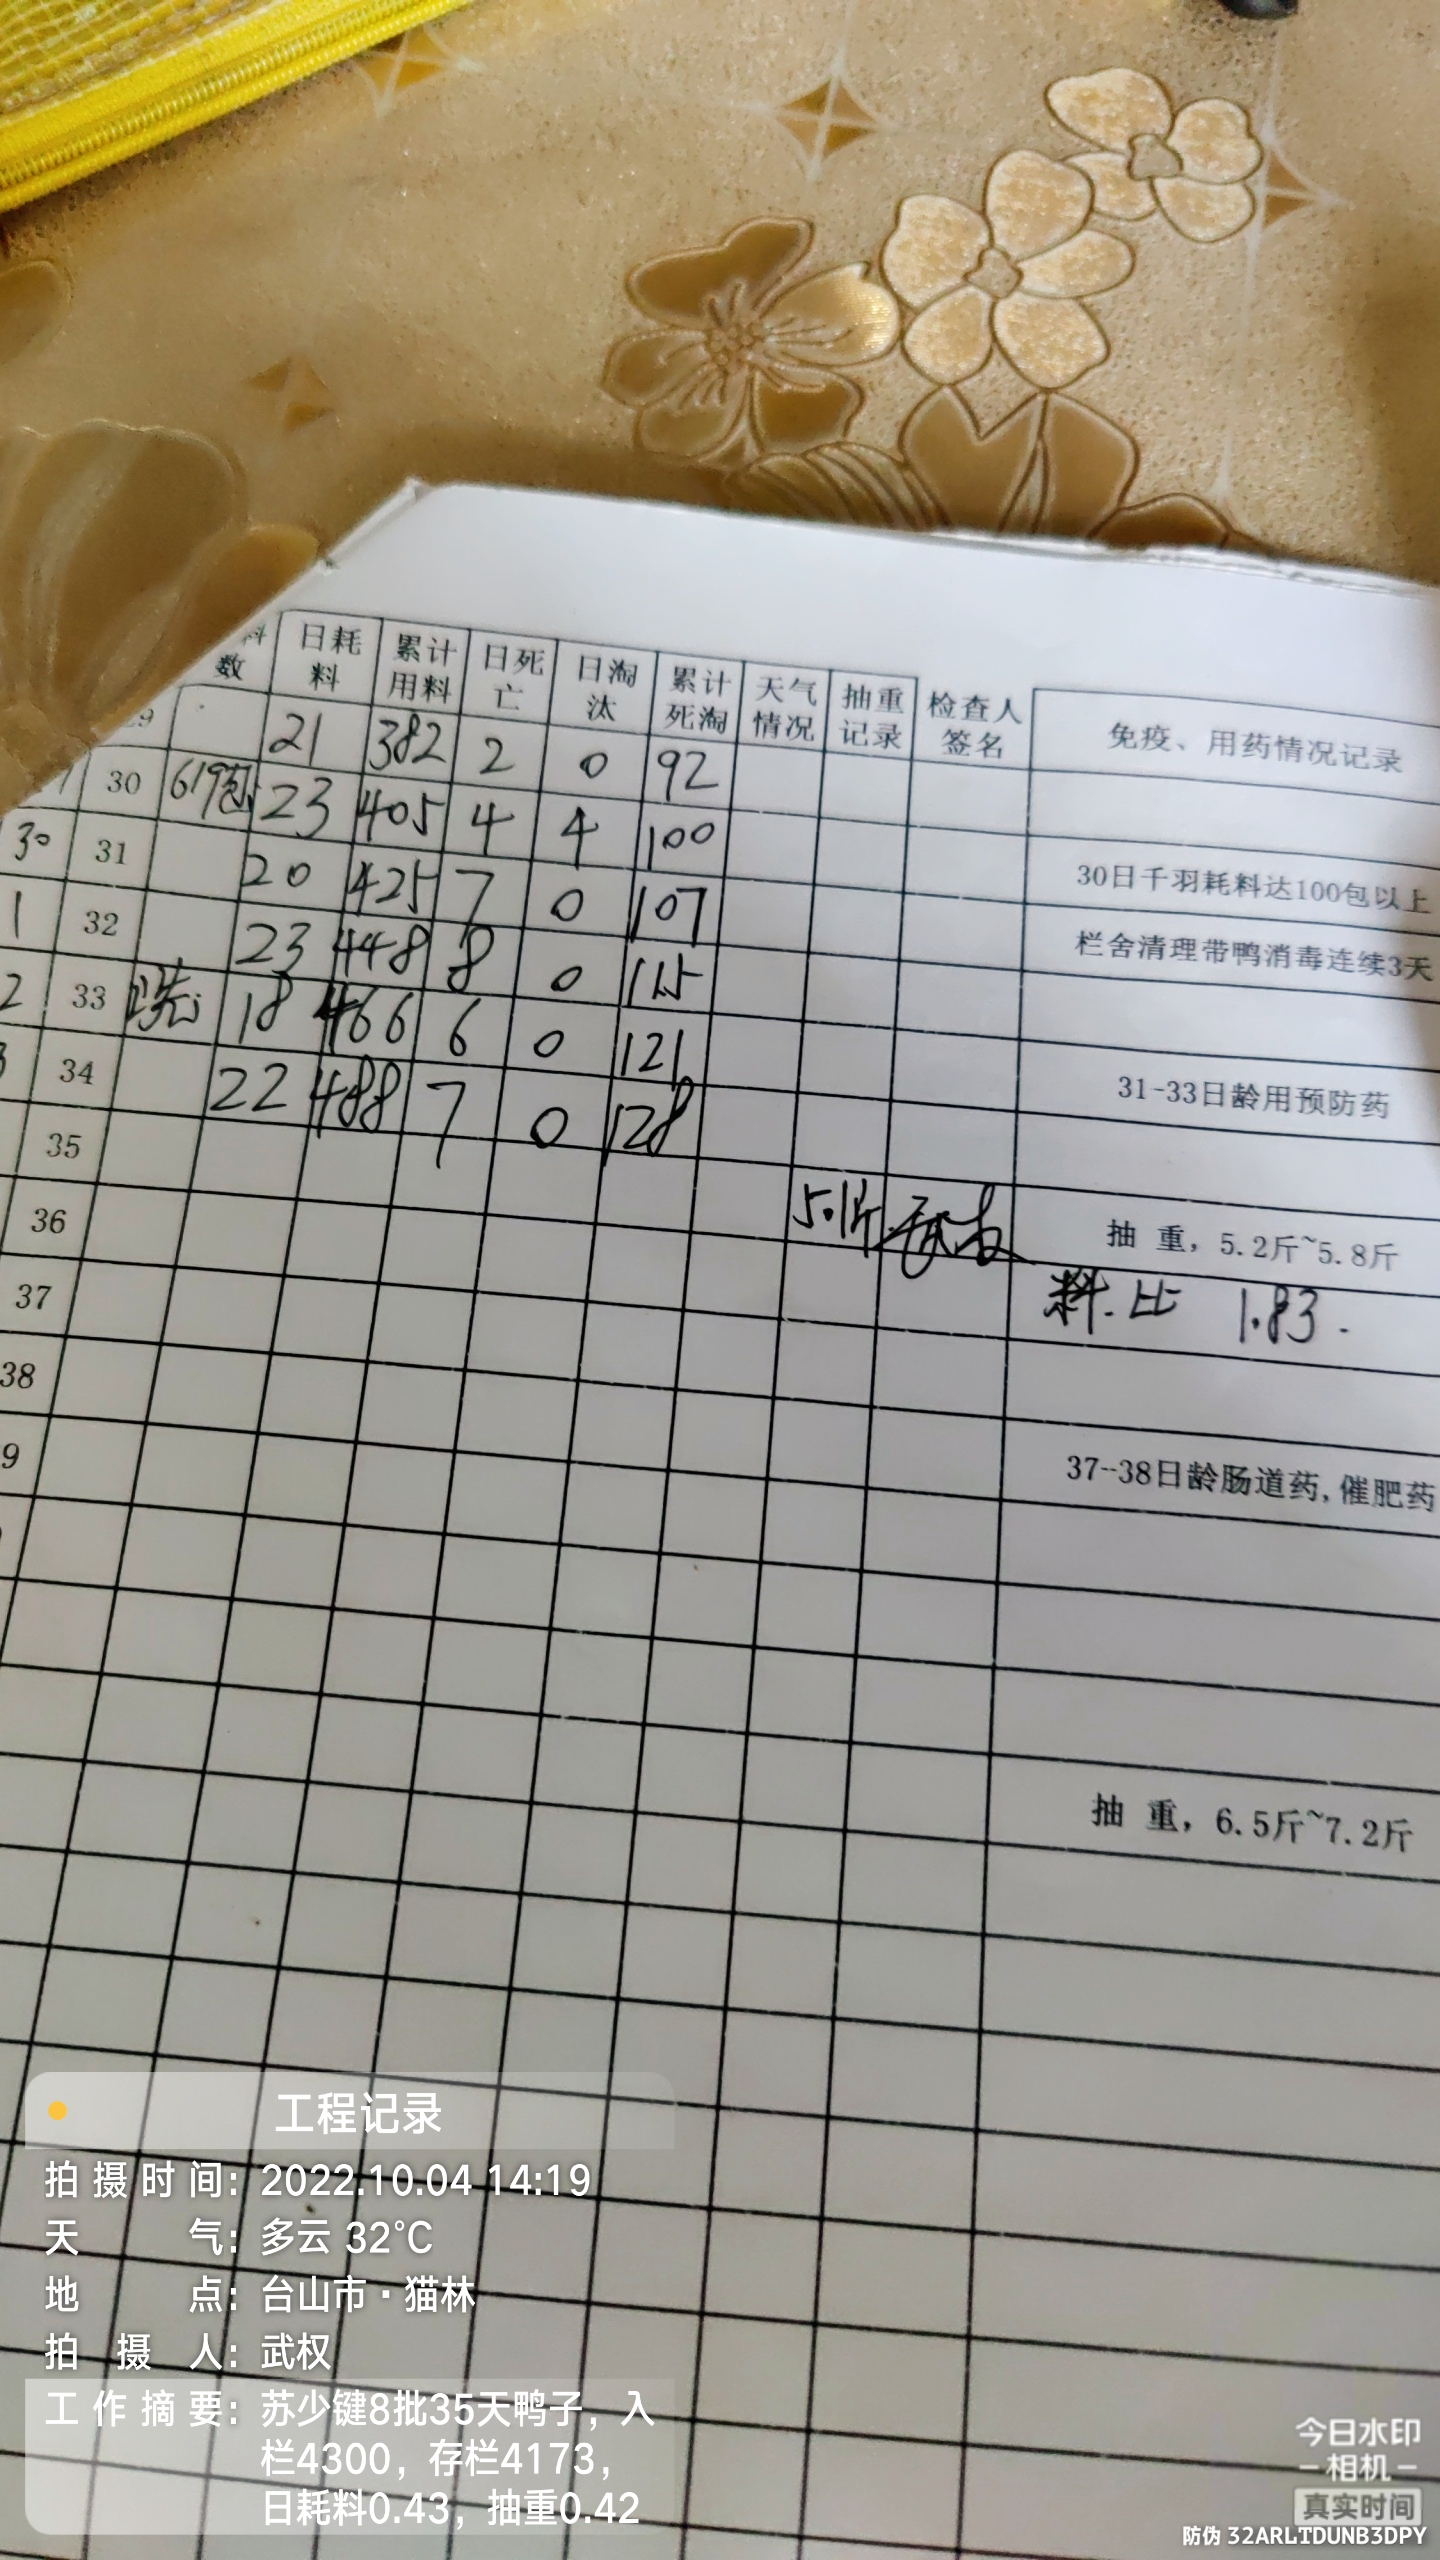 料数 日耗料 累计用料 日死亡 日淘汰 累计死淘 天气情况 抽重记录 检查人签名 免疫、用药情况记录
29 21 382 2 0 92
30 619包 23 405 4 4 100
30 31 20 425 7 0 107 30日千羽耗料达100包以上
1 32 23 448 8 0 115 栏舍清理带鸭消毒连续3天
2 33 18 466 6 0 121
34 22 488 7 0 128 31-33日龄用预防药
35
36 5.1斤 抽 重，5.2斤~5.8斤
37 料.比 1.83.
38
9 37--38日龄肠道药,催肥药
抽 重，6.5斤~7.2斤
工程记录
拍摄时间：2022.10.04 14:19
天气：多云 32°C
地点：台山市·猫林
拍摄人：武权
工作摘要：苏少键8批35天鸭子，入
栏4300，存栏4173，
日耗料0.43，抽重0.42
今日水印
－相机－
真实时间
防伪 32ARLTDUNB3DPY